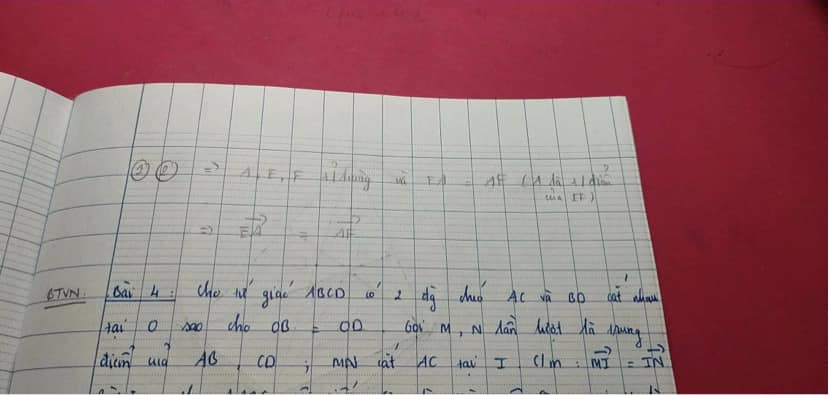 ① ② => A, E, F thẳng và EA = AF (A là
của EF)
=> EA = AF
BTVN. Bài 4 : Cho tứ giác ABCD có 2 đg chéo AC và BD cắt nhau
tại O sao cho OB = OD. Gọi M, N lần lượt là trung
điểm của AB, CD ; MN cắt AC tại I. C/m : MI = IN